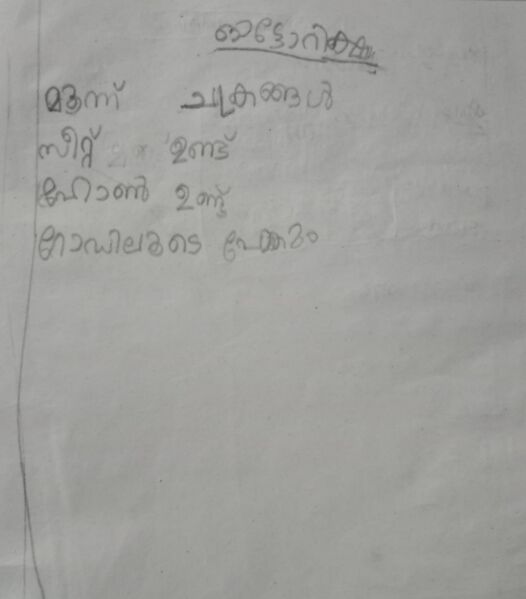 ഓട്ടോറിക്ഷ
മൂന്ന് ചക്രങ്ങൾ
സീറ്റ് ഉണ്ട്
ഹോൺ ഉണ്ട്
റോഡിലൂടെ പോകും